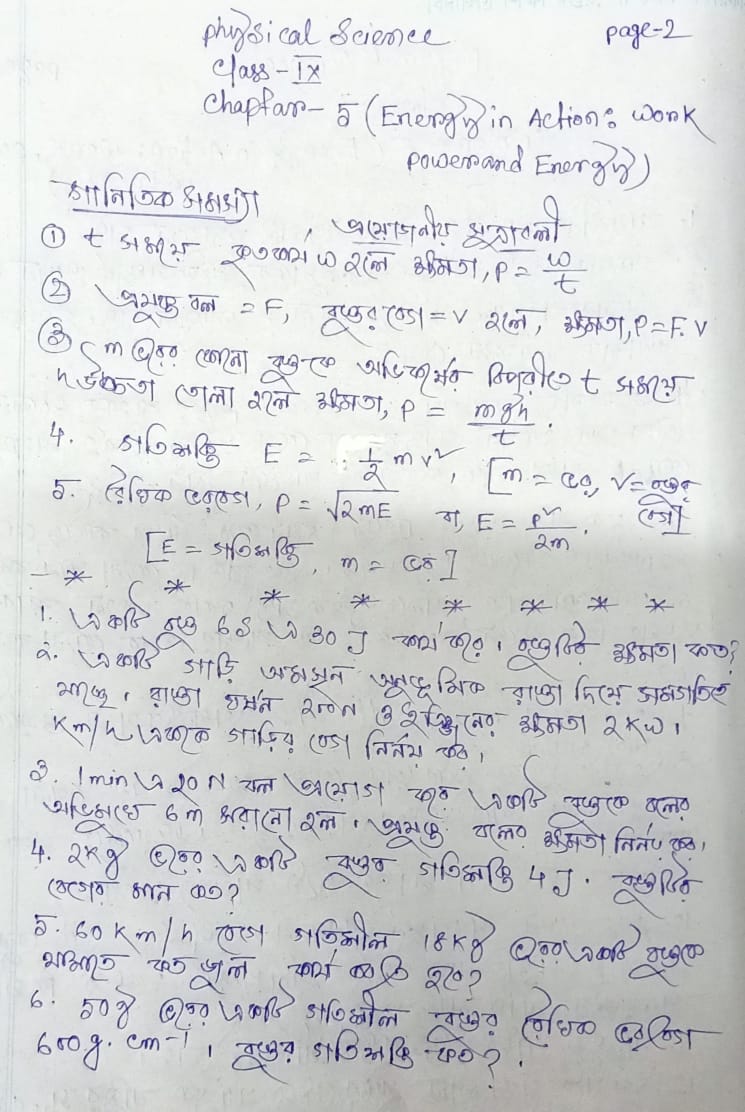 Physical Science page-2
Class - IX
Chaptar - 5 (Energy in Action: Work
Power and Energy)
গানিতিক সমস্যা
প্রয়োজনীয় সূত্রাবলী
① t সময়ে কৃতকার্য W হলে ক্ষমতা, P = W/t
② প্রযুক্ত বল = F, বস্তুর বেগ = V হলে, ক্ষমতা, P = F.V
③ m ভরের কোনো বস্তুকে অভিকর্ষের বিপরীতে t সময়ে
h উচ্চতা তোলা হলে ক্ষমতা, P = mgh/t.
4. গতিশক্তি E = 1/2 mv², [m = ভর, V = বস্তুর
বেগ]
5. রৈখিক ভরবেগ, P = √2mE বা, E = P²/2m.
[E = গতিশক্তি, m = ভর]
* * * * * * * *
1. একটি বস্তু 6S এ 30 J কার্য করে। বস্তুটির ক্ষমতা কত?
2. একটি গাড়ি অমসৃন অনুভূমিক রাস্তা দিয়ে সমগতিতে
যাচ্ছে। রাস্তা ঘর্ষন 200N ও ইঞ্জিনের ক্ষমতা 2KW।
Km/h এককে গাড়ির বেগ নির্নয় কর।
3. 1min এ 20 N বল প্রয়োগ করে একটি বস্তুকে বলের
অভিমুখে 6m সরানো হল। প্রযুক্ত বলের ক্ষমতা নির্নয় কর।
4. 2Kg ভরের একটি বস্তুর গতিশক্তি 4 J. বস্তুটির
বেগের মান কত?
5. 60 Km/h বেগে গতিশীল 18Kg ভরের একটি বস্তুকে
থামাতে কত কার্য করতে হবে?
6. 50g ভরের একটি গতিশীল বস্তুর রৈখিক ভরবেগ
600g. cm⁻¹। বস্তুর গতিশক্তি কত?